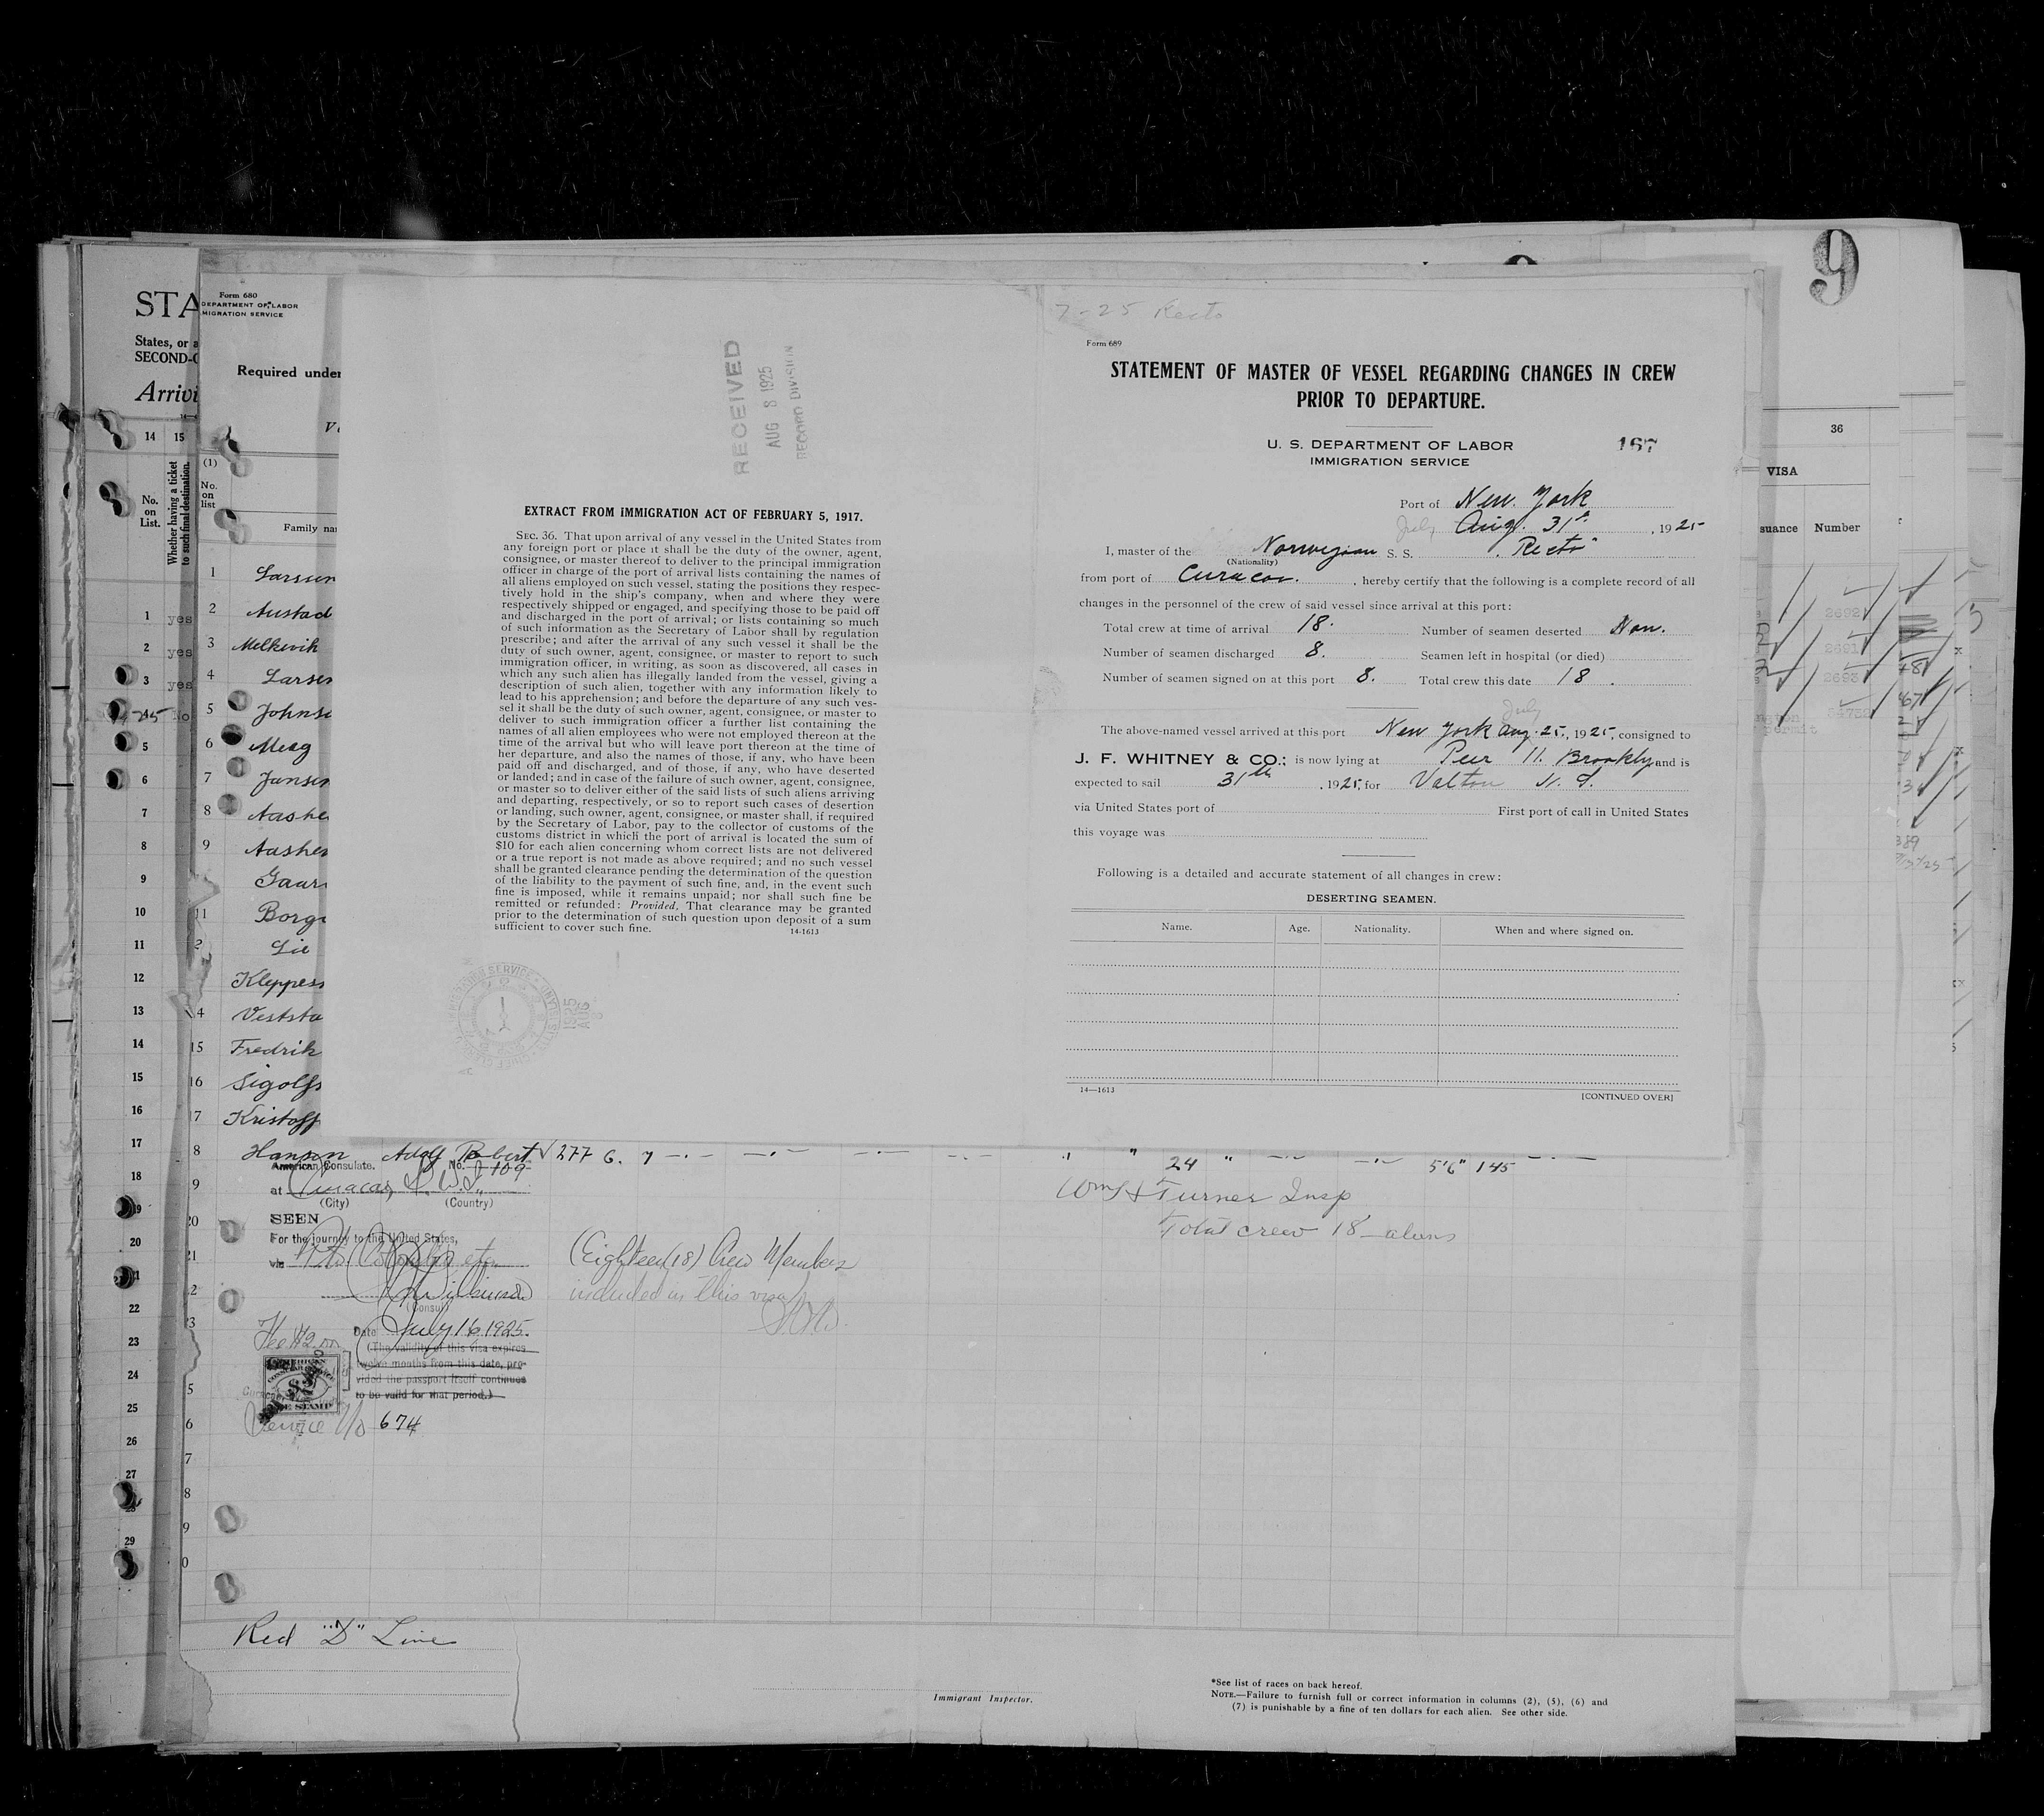 9
STA
States, or a
SECOND-C
Arrivi
14
15
No.
on
List.
Whether having a ticket
to such final destination.
1 yes
2 yes
3 yes
No
5
6
7
8
9
10
11
12
13
14
15
16
17
18
19
20
21
22
23
24
25
26
27
29
Form 680
DEPARTMENT OF LABOR
MIGRATION SERVICE
Required under
(1)
No.
on
list
Family na
1 Larsen
2 Austad
3 Melkevik
4 Larsen
5 Johnse
6 Meag
7 Jansen
8 Aashe
9 Aashei
Gaar
11 Borge
2 Lie
Kleppess
4 Veststa
15 Fredrik
16 Sigolfs
7 Kristoff
8 Hansen Adolf Robert 277 6. 7 " 24 " 5'6" 145
American Consulate. No. 109
at Curacao, D.W.I.,
(City) (Country)
SEEN
For the journey to the United States,
via
(Consul)
Date July 16 1925.
(The validity of this visa expires
twelve months from this date, pro-
vided the passport itself continues
to be valid for that period.)
Fee $2.00
Service No 674
(Eighteen (18) Crew Members
included in this visa)
Wm H Turner Insp
Total crew 18 aliens
Red "D" Line
Immigrant Inspector.
*See list of races on back hereof.
NOTE.—Failure to furnish full or correct information in columns (2), (5), (6) and
(7) is punishable by a fine of ten dollars for each alien. See other side.
RECEIVED
AUG 8 1925
RECORD DIVISION
EXTRACT FROM IMMIGRATION ACT OF FEBRUARY 5, 1917.
SEC. 36. That upon arrival of any vessel in the United States from
any foreign port or place it shall be the duty of the owner, agent,
consignee, or master thereof to deliver to the principal immigration
officer in charge of the port of arrival lists containing the names of
all aliens employed on such vessel, stating the positions they respec-
tively hold in the ship's company, when and where they were
respectively shipped or engaged, and specifying those to be paid off
and discharged in the port of arrival; or lists containing so much
of such information as the Secretary of Labor shall by regulation
prescribe; and after the arrival of any such vessel it shall be the
duty of such owner, agent, consignee, or master to report to such
immigration officer, in writing, as soon as discovered, all cases in
which any such alien has illegally landed from the vessel, giving a
description of such alien, together with any information likely to
lead to his apprehension; and before the departure of any such ves-
sel it shall be the duty of such owner, agent, consignee, or master to
deliver to such immigration officer a further list containing the
names of all alien employees who were not employed thereon at the
time of the arrival but who will leave port thereon at the time of
her departure, and also the names of those, if any, who have been
paid off and discharged, and of those, if any, who have deserted
or landed; and in case of the failure of such owner, agent, consignee,
or master so to deliver either of the said lists of such aliens arriving
and departing, respectively, or so to report such cases of desertion
or landing, such owner, agent, consignee, or master shall, if required
by the Secretary of Labor, pay to the collector of customs of the
customs district in which the port of arrival is located the sum of
$10 for each alien concerning whom correct lists are not delivered
or a true report is not made as above required; and no such vessel
shall be granted clearance pending the determination of the question
of the liability to the payment of such fine, and, in the event such
fine is imposed, while it remains unpaid; nor shall such fine be
remitted or refunded: Provided, That clearance may be granted
prior to the determination of such question upon deposit of a sum
sufficient to cover such fine.
14-1613
7-25 Recto
Form 689
STATEMENT OF MASTER OF VESSEL REGARDING CHANGES IN CREW
PRIOR TO DEPARTURE.
U. S. DEPARTMENT OF LABOR
IMMIGRATION SERVICE
167
Port of New York
July Aug. 31st, 1925
I, master of the Norwegian S. S. Recto"
(Nationality)
from port of Curacao., hereby certify that the following is a complete record of all
changes in the personnel of the crew of said vessel since arrival at this port:
Total crew at time of arrival 18. Number of seamen deserted Non.
Number of seamen discharged 8. Seamen left in hospital (or died)
Number of seamen signed on at this port 8. Total crew this date 18.
July
The above-named vessel arrived at this port New York Aug. 25., 1925, consigned to
J. F. WHITNEY & CO.; is now lying at Peer 11. Brooklyn and is
expected to sail 31th, 1925, for Valton N. S.
via United States port of First port of call in United States
this voyage was
Following is a detailed and accurate statement of all changes in crew:
DESERTING SEAMEN.
Name. Age. Nationality. When and where signed on.
14—1613
[CONTINUED OVER]
36
VISA
suance Number
2692
2691
2693
permit